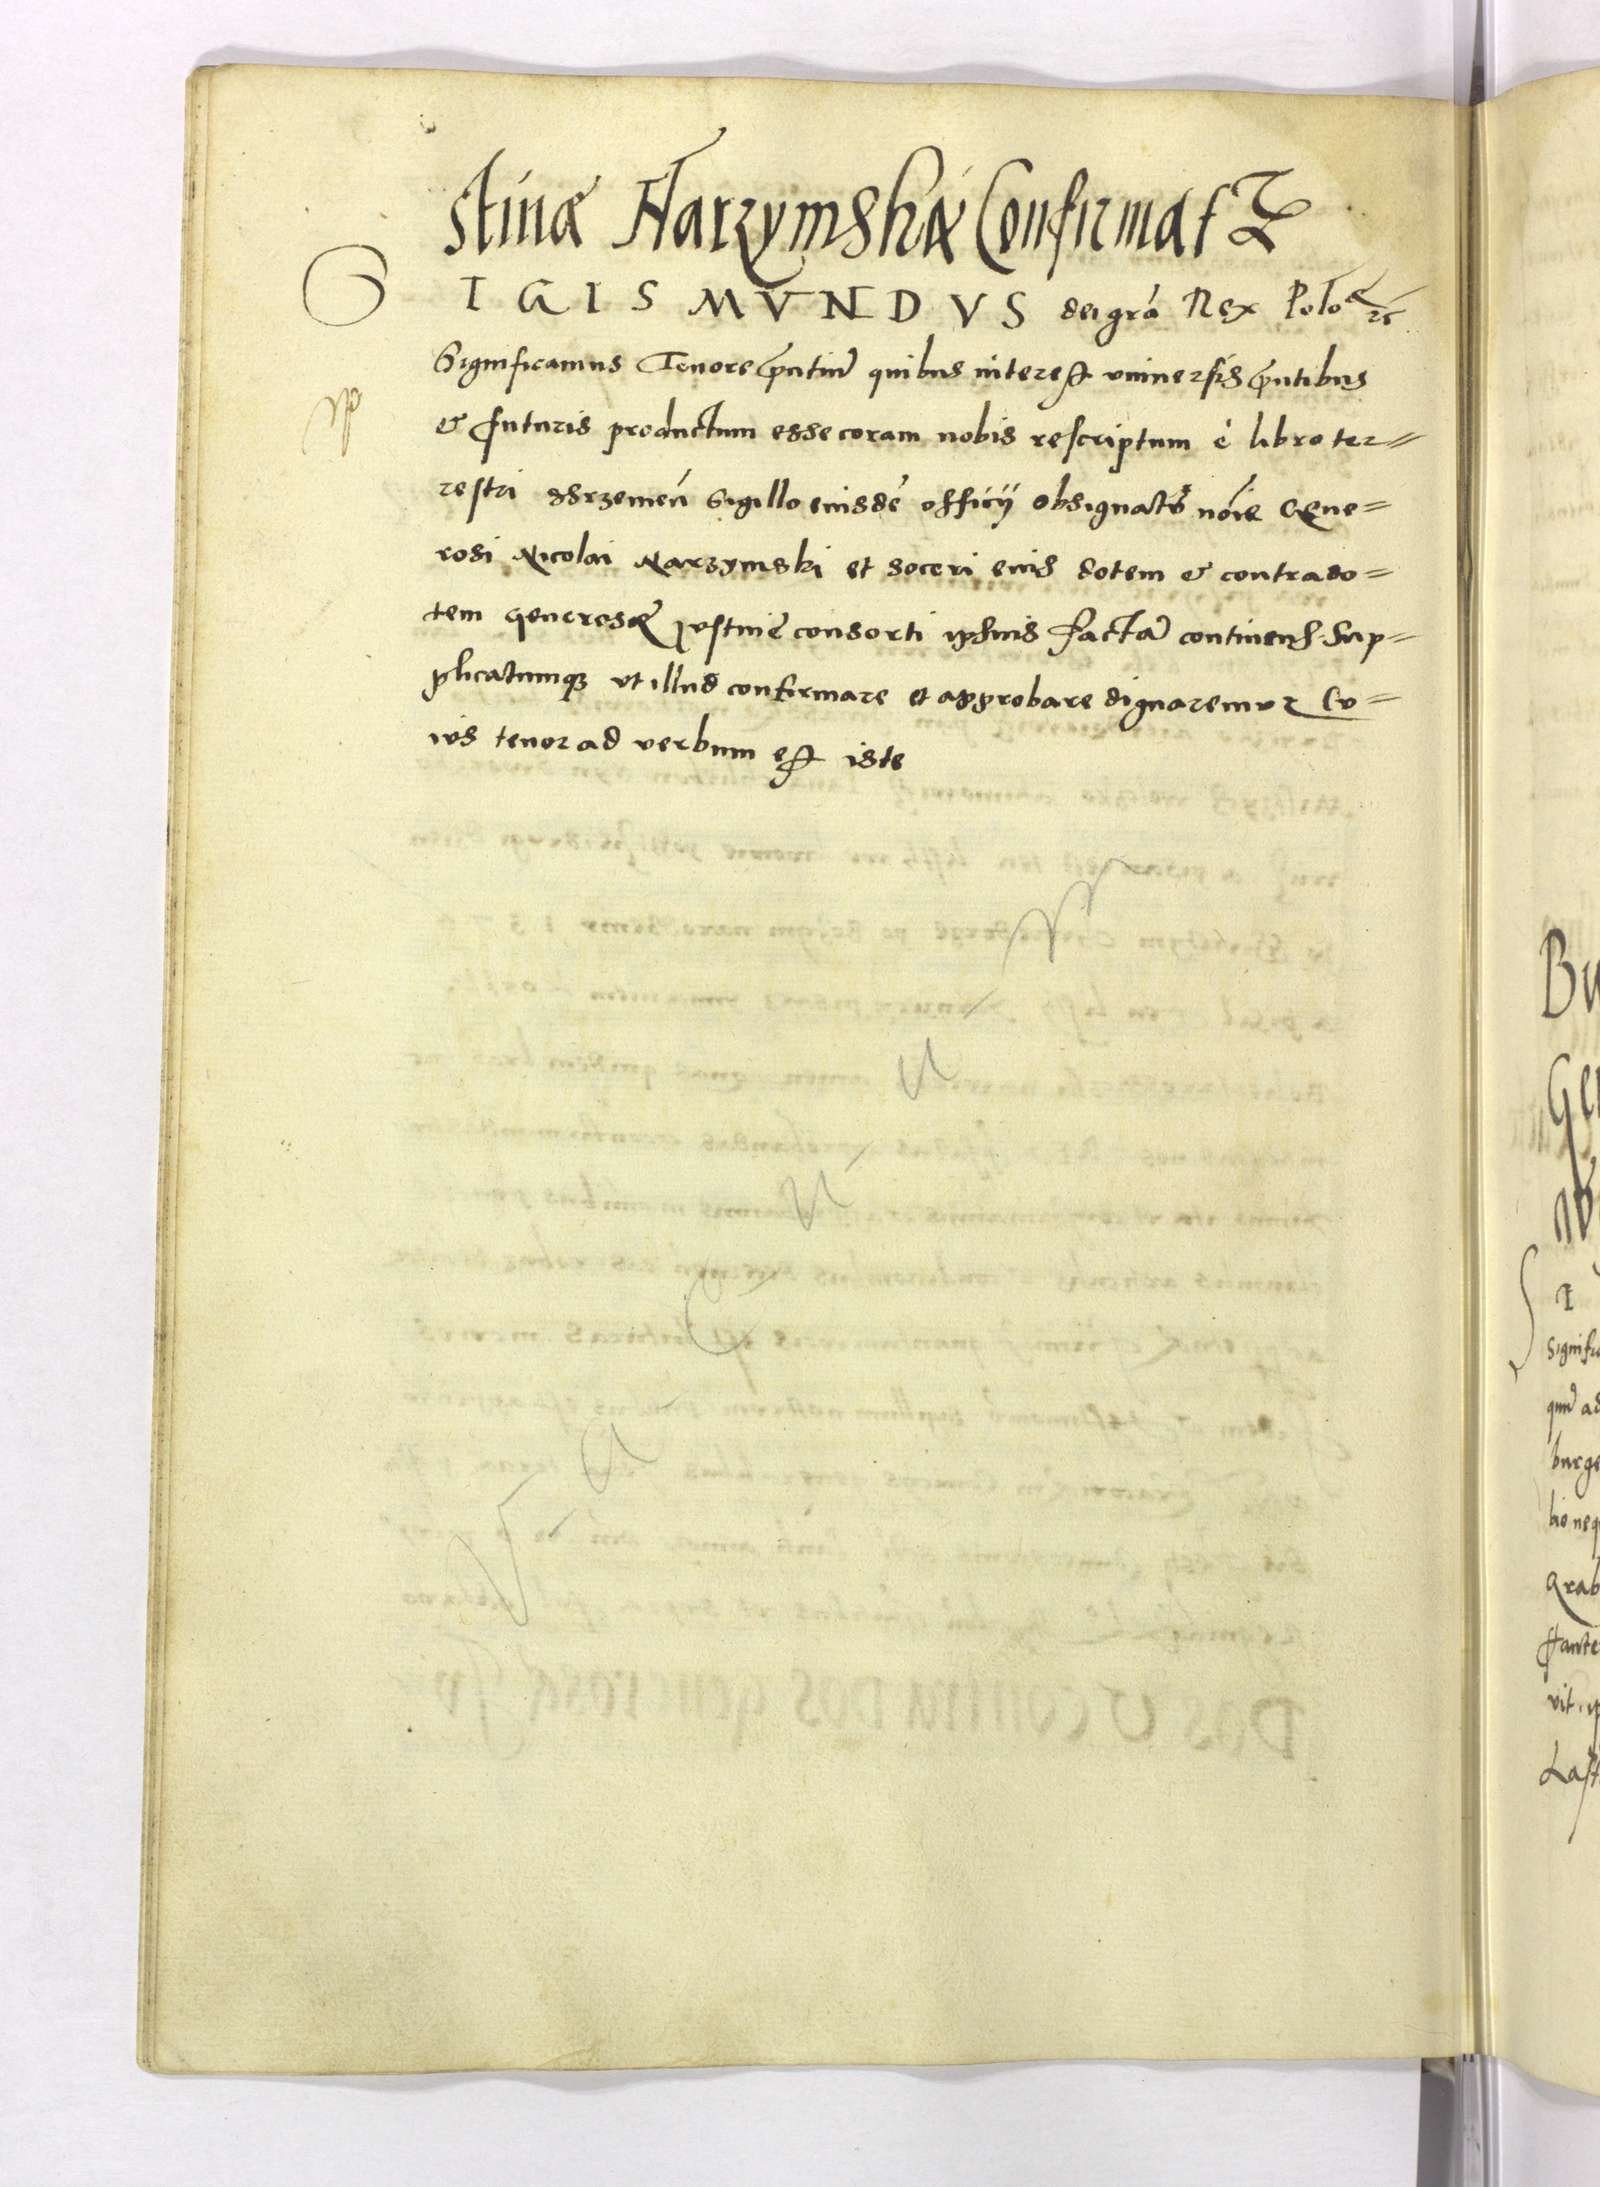 stinæ Narzymskæ Confirmat
S IGISMVNDVS dei grã Rex Polo etc
Significamus Tenore pñtium quibus interest vniuersis pñtibus
& futuris productum esse coram nobis rescriptum è libro ter=
restri Srzemeñ Sigillo eiusdē officij obsignatū noīe Gene=
rosi Nicolai Narzymski et soceri eius dotem & contrado=
tem generosæ Iustinæ consorti ipsius factā continens Sup=
plicatumq3 vt illud confirmare et approbare dignaremur Cu=
ius tenor ad verbum est iste
V A C U U M
Bu
Gen
I
Signific
ad
burge
lio neq
Grab
vit
Last